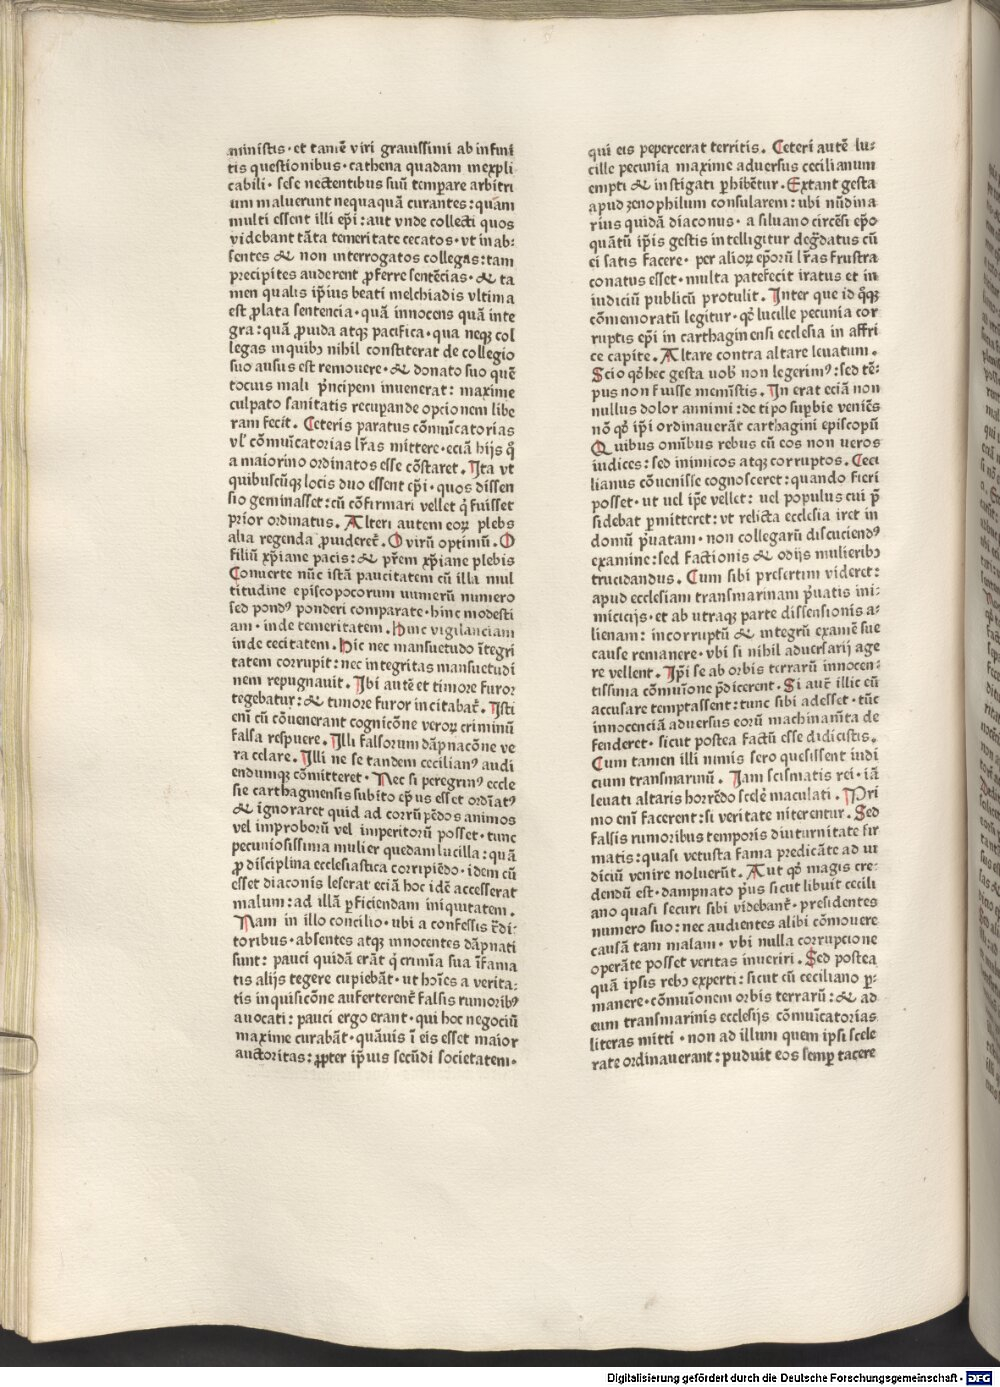 ministis·et tamē viri grauissimi ab infini
tis questionibus·cathena quadam inexpli
cabili·sese nectentibus suū temꝑare arbitri
um maluerunt nequaquā curantes:quām
multi essent illi ep̄i:aut vnde collecti quos
videbant tāta temeritate cecatos·vt in ab:
sentes & non interrogatos collegas:tam
precipites auderent ꝓferre sentēcias·& ta
men qualis ip̄ius beati melchiadis vltima
est ꝓlata sentencia·quā innocens quā inte
gra:quā ꝓuida atqꝫ pacifica·qua neqꝫ col
legas in quibꝫ nihil constiterat de collegio
suo ausus est remouere·& donato suo quē
tocius mali p̄ncipem inuenerat: maxime
culpato sanitatis recuꝑande opcionem libe
ram fecit. Ceteris paratus cōmūicatorias
vl' cōmūicatorias lr̄as mittere·eciā hijs q̄
a maiorino ordinatos esse cōstaret. Ita vt
quibuscūqꝫ locis duo essent ep̄i·quos dissen
sio geminasset:cū cōfirmari vellet q̄ fuisset
prior ordinatus. Alteri autem eoꝝ plebs
alia regenda ꝓuideret̄. O virū optimū. O
filiū xp̄iane pacis:& pr̄em xp̄iane plebis
Conuerte nūc istā paucitatem cū illa mul
titudine episcopocorum numerū numero
sed pondꝰ ponderi comparate·hinc modesti
am·inde temeritatem. Hinc vigilanciam
inde cecitatem. Hic nec mansuetudo ītegri
tatem corrupit:nec integritas mansuetudi
nem repugnauit. Ibi autē et timore furor
tegebatur:& timore furor incitabat̄. Isti
eni̅ cū cōuenerant cognicōne veroꝝ criminū
falsa respuere. Illi falsorum dāpnacōne ve
ra celare. Illi ne se tandem cecilianꝰ audi
endumqꝫ cōmitteret. Nec si peregrinꝰ eccle
sie carthaginensis subito ep̄us esset ordīatꝰ
& ignoraret quid ad corrūpēdos animos
vel improborū vel imperitorū posset·tunc
pecuniosissima mulier quedam lucilla:quā
ꝓ disciplina ecclesiastica corripiēdo·idem cū
esset diaconis leserat eciā hoc idē accesserat
malum:ad illā ꝑficiendam iniquitatem.
Nam in illo concilio·ubi a confessis t̄di:
toribus·absentes atqꝫ innocentes dāpnati
sunt: pauci quidā erāt q̄ crimīa sua īfamia
tis alijs tegere cupiebāt·ut hoīes a verita:
tis inquisicōne auferterent̄ falsis rumoribꝰ
auocati: pauci ergo erant·qui hoc negociū
maxime curabāt·quāuis ī eis esset maior
auctoritas:ꝓpter ip̄ius secūdi societatem·
qui eis pepercerat territis. Ceteri autē lu:
cille pecunia maxime aduersus cecilianum
empti & instigati ꝑhibētur. Extant gesta
apud zenophilum consularem:ubi nūdina
rius quidā diaconus·a siluano circēsi ep̄o
quātū ip̄is gestis intelligitur degr̄datus cū
ei satis facere·per alioꝝ ep̄orū lr̄as frustra
conatus esset·multa patefecit iratus et in
iudiciū publicū protulit. Inter que id q̄qꝫ
cōmemoratū legitur·qꝫ lucille pecunia cor
ruptis ep̄i in carthaginensi ecclesia in affri
ce capite. Altare contra altare leuatum.
Scio qꝫ hec gesta uob̄ non legerimꝰ:sed tē:
pus non fuisse meministis. In erat eciā non
nullus dolor annimi:de tipo suꝑbie veniēs
nō qꝫ ip̄i ordinauerāt carthagini episcopū
Quibus omībus rebus cū eos non veros
iudices:sed inimicos atqꝫ corruptos. Ceci
lianus cōuenisse cognosceret:quando fieri
posset·ut uel ip̄e vellet: uel populus cui p̄
sidebat ꝑmitteret:ut relicta ecclesia iret in
domū p̄uatam·non collegarū discuciendꝰ
examine:sed factionis & odijs mulieribꝫ
trucidandus. Cum sibi presertim videret:
apud ecclesiam transmarinam p̄uatis ini:
micicijs·et ab utraqꝫ parte dissensionis a:
lienam: incorruptū & integrū examē sue
cause remanere·vbi si nihil aduersarij age
re vellent. Ip̄i se ab orbis terrarū innocen:
tissima cōmūione p̄dicerent. Si aut̄ illic eū
accusare temptassent:tunc sibi adesset·tūc
innocenciā aduersus eorū machinam̄ta de
fenderet·sicut postea factū esse didicistis.
Cum tamen illi nimis sero quesissent iudi
cium transmarinū. Iam scismatis rei·iā
leuati altaris horrēdo scele͛ maculati. Pri
mo eni̅ facerent:si veritate niterentur. Sed
falsis rumoribus temporis diuturnitate fir
matis:quasi vetusta fama predicāte ad iu
diciū venire noluerūt. Aut qꝫ magis cre:
dendū est·dampnato p̄us sicut libuit cecili
ano quasi securi sibi videbant̄·presidentes
numero suo:nec audientes alibi cōmouere
causā tam malam·vbi nulla corrupcione
operāte posset veritas inueriri. Sed postea
quā ipsis rebꝫ experti:sicut cū ceciliano ꝑ:
manere·cōmūionem orbis terrarū:& ad
eum transmarinis ecclesijs cōmūicatorias
literas mitti·non ad illum quem ipsi scele
rate ordinauerant:puduit eos semꝑ tacere
Digitalisierung gefördert durch die Deutsche Forschungsgemeinschaft - DFG